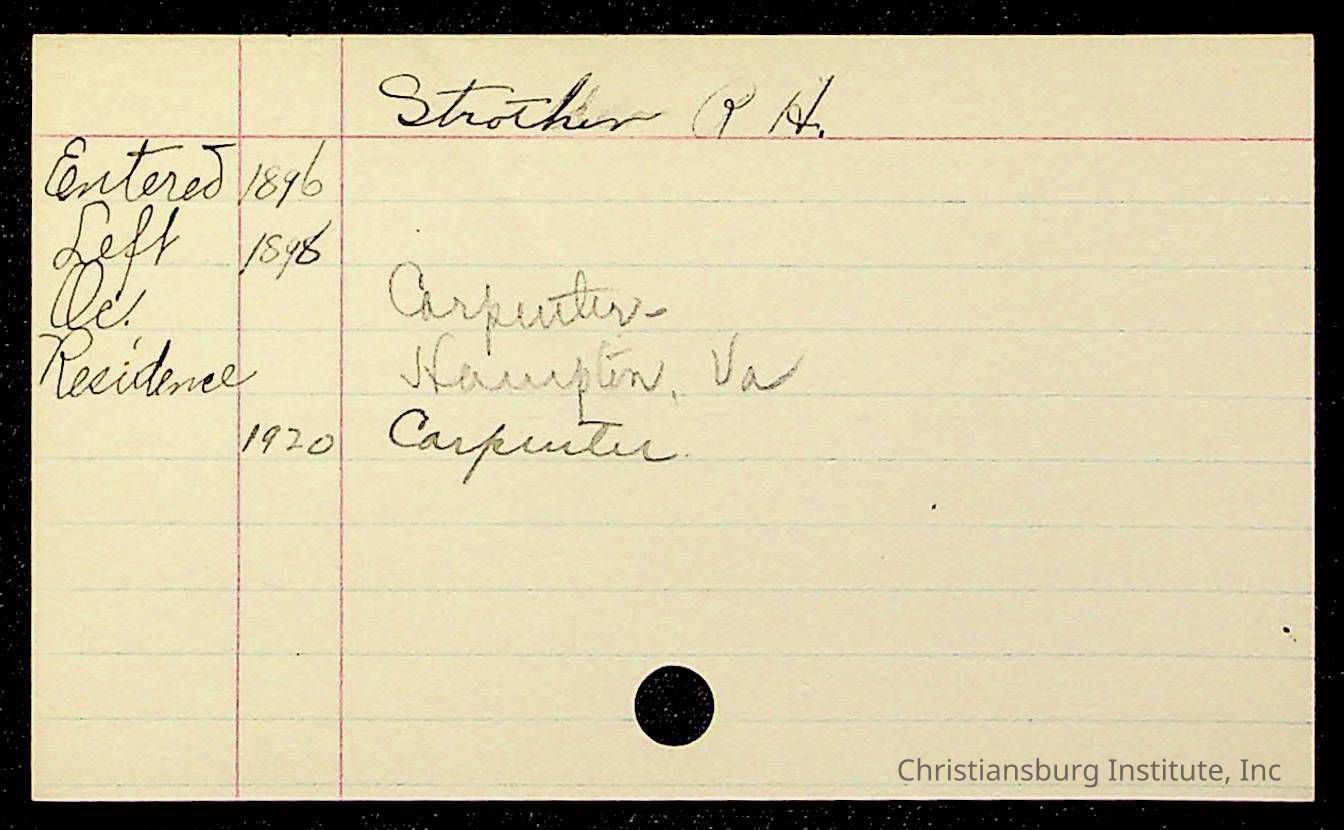 Strother R H.
Entered 1896
Left 1898
Oc. Carpenter
Residence Hampton, Va
1920 Carpenter
Christiansburg Institute, Inc